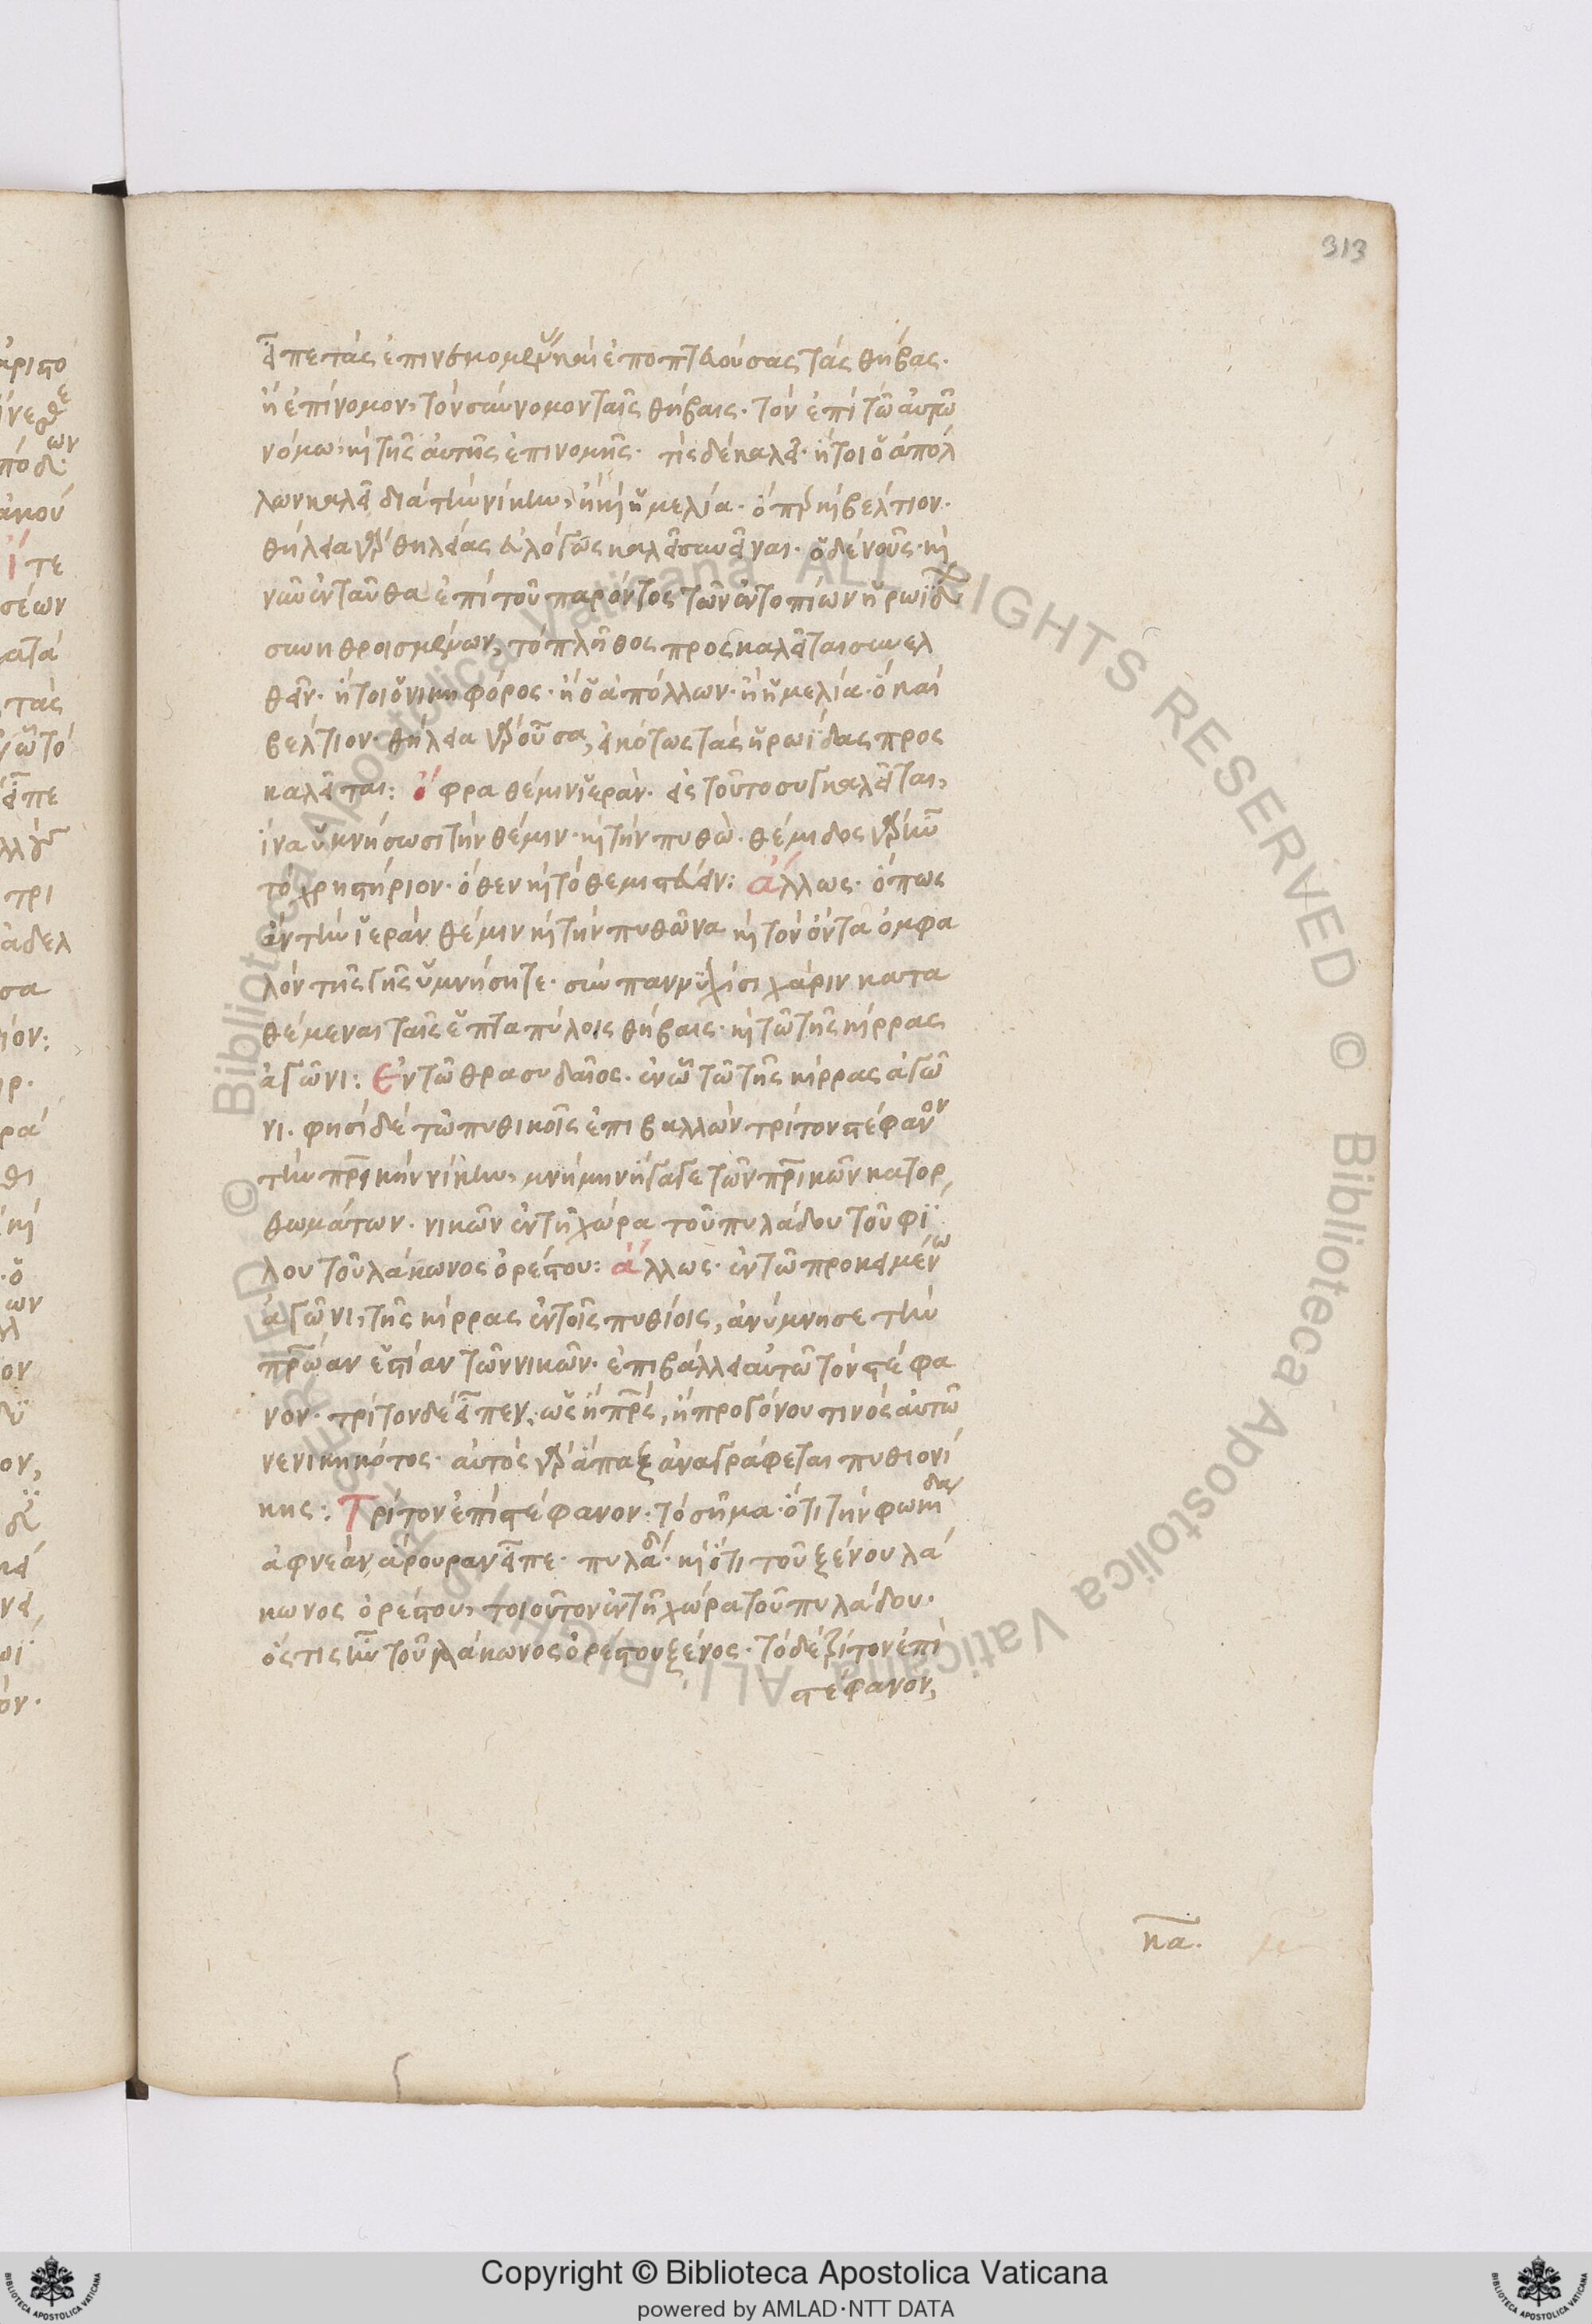 313
εἶπε τὰς ἐπινεμομένας καὶ ἐποπτευούσας τὰς θήβας·
ἢ ἐπίνομον, τὸν σύννομον ταῖς θήβαις· τὸν ἐπὶ τῶ αὐτῶ
νόμω, κ τῆς αὐτῆς ἐπινομῆς· τίς δὲ καλεῖ· ἤτοι ὁ ἀπόλ
λων καλεῖ διὰ τὴν νίκην, ἢ κ ἡ μελία· ὅπερ κ βέλτιον·
θήλεια γὰρ θηλείας εὐλόγως καλεῖ συνεῖναι·
νῦν ἐνταῦθα ἐπὶ τοῦ παρόντος τῶν ἐντοπίων ἡρωΐδων
συνηθροισμένων, τὸ πλῆθος προσκαλεῖται συνελ
θεῖν· ἤτοι ὁ νικηφόρος· ἢ ὁ ἀπόλλων· ἢ ἡ μελία· ὃ καὶ
βέλτιον· θήλεια γὰρ οὖσα, εἰκότως τὰς ἡρωΐδας προς
καλεῖται: ὄφρα θέμιν ἱερὰν· εἰς τοῦτο συγκαλεῖται,
ἵνα ὑμνήσωσι τὴν θέμιν· κ τὴν πυθὼ· θέμιδος γὰρ ἦν
τὸ χρηστήριον· ὅθεν κ τὸ θεμιστεύειν: ἄλλως· ὅπως
ἂν τὴν ἱερὰν θέμιν κ τὴν πυθῶνα κ τὸν ὄντα ὀμφα
λὸν τῆς γῆς ὑμνήσητε· σὺν παννυχίσι χάριν κατα
θέμεναι ταῖς ἑπταπύλοις θήβαις· κ τῶ τῆς κίρρας
ἀγῶνι: Ἐν τῶ θρασυδαῖος· ἐν ᾧ τῶ τῆς κίρρας ἀγῶ
νι· φησὶ δὲ τῶ πυθικοῖς ἐπιβαλλὼν τρίτον στέφανον
τὴν πατρικὴν νίκην, μνήμην ἤγαγε τῶν πατρικῶν κατορ
θωμάτων· νικῶν ἐν τῆ χώρα τοῦ πυλάδου τοῦ φί
λου τοῦ λάκωνος ὀρέστου: ἄλλως· ἐν τῶ προκειμένω
ἀγῶνι, τῆς κίρρας ἐν τοῖς πυθίοις, ἀνύμνησε τὴν
πατρώαν ἑστίαν τῶν νικῶν· ἐπιβάλλει αὐτῶ τὸν στέφα
νον· τρίτον δὲ εἶπεν, ὡς ἢ πατρὸς, ἢ προγόνου τινὸς αὐτῶ
νενικηκότος· αὐτὸς γὰρ ἅπαξ ἀναγράφεται πυθιονί
κης: Τρίτον ἐπὶ στέφανον· τὸ σῆμα· ὅτι τὴν φωκίδα
ἀφνεὰν ἄρουραν εἶπε· πυλάδου· κ ὅτι τοῦ ξένου λά
κωνος ὀρέστου, τοιοῦτον ἐν τῆ χώρα τοῦ πυλάδου·
ὅςτις ἦν τοῦ λάκωνος ὀρέστου ξένος· τὸ δὲ τρίτον ἐπὶ
στέφανον,
κα.